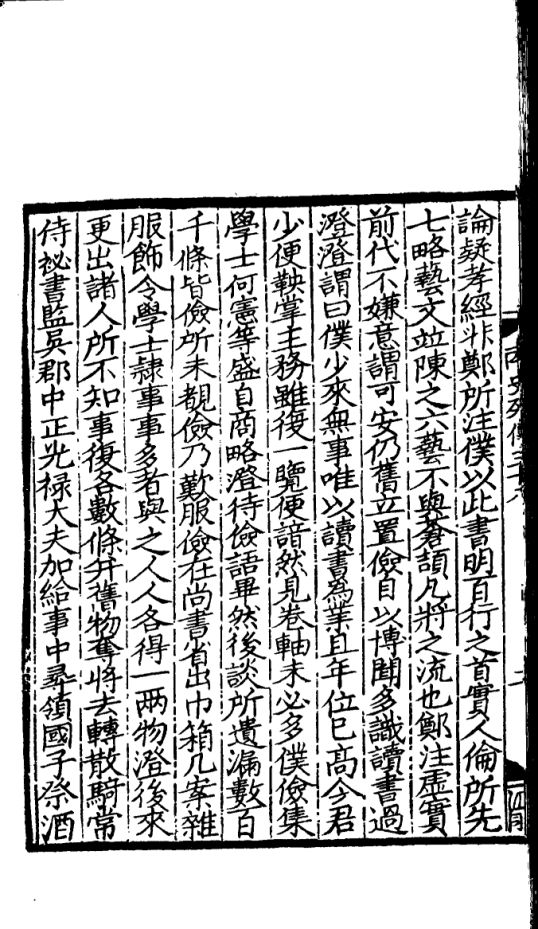 論疑孝經非鄭所注僕以此書明百行之首實人倫所先
七略藝文竝陳之六藝不與蒼頡凡將之流也鄭注虚實
前代不嫌意謂可安仍舊立置儉自以博聞多識讀書過
澄澄謂曰僕少來無事唯以讀書爲業且年位已高今君
少便鞅掌王務雖復一覽便諳然見卷軸未必多僕儉集
學士何憲等盛自商略澄待儉語畢然後談所遺漏數百
千條皆儉所未覩儉乃歎服儉在尚書省出巾箱几案雜
服飾令學士隸事事多者與之人人各得一兩物澄後來
更出諸人所不知事復各數條并舊物奪將去轉散騎常
侍祕書監吳郡中正光禄大夫加給事中尋領國子祭酒